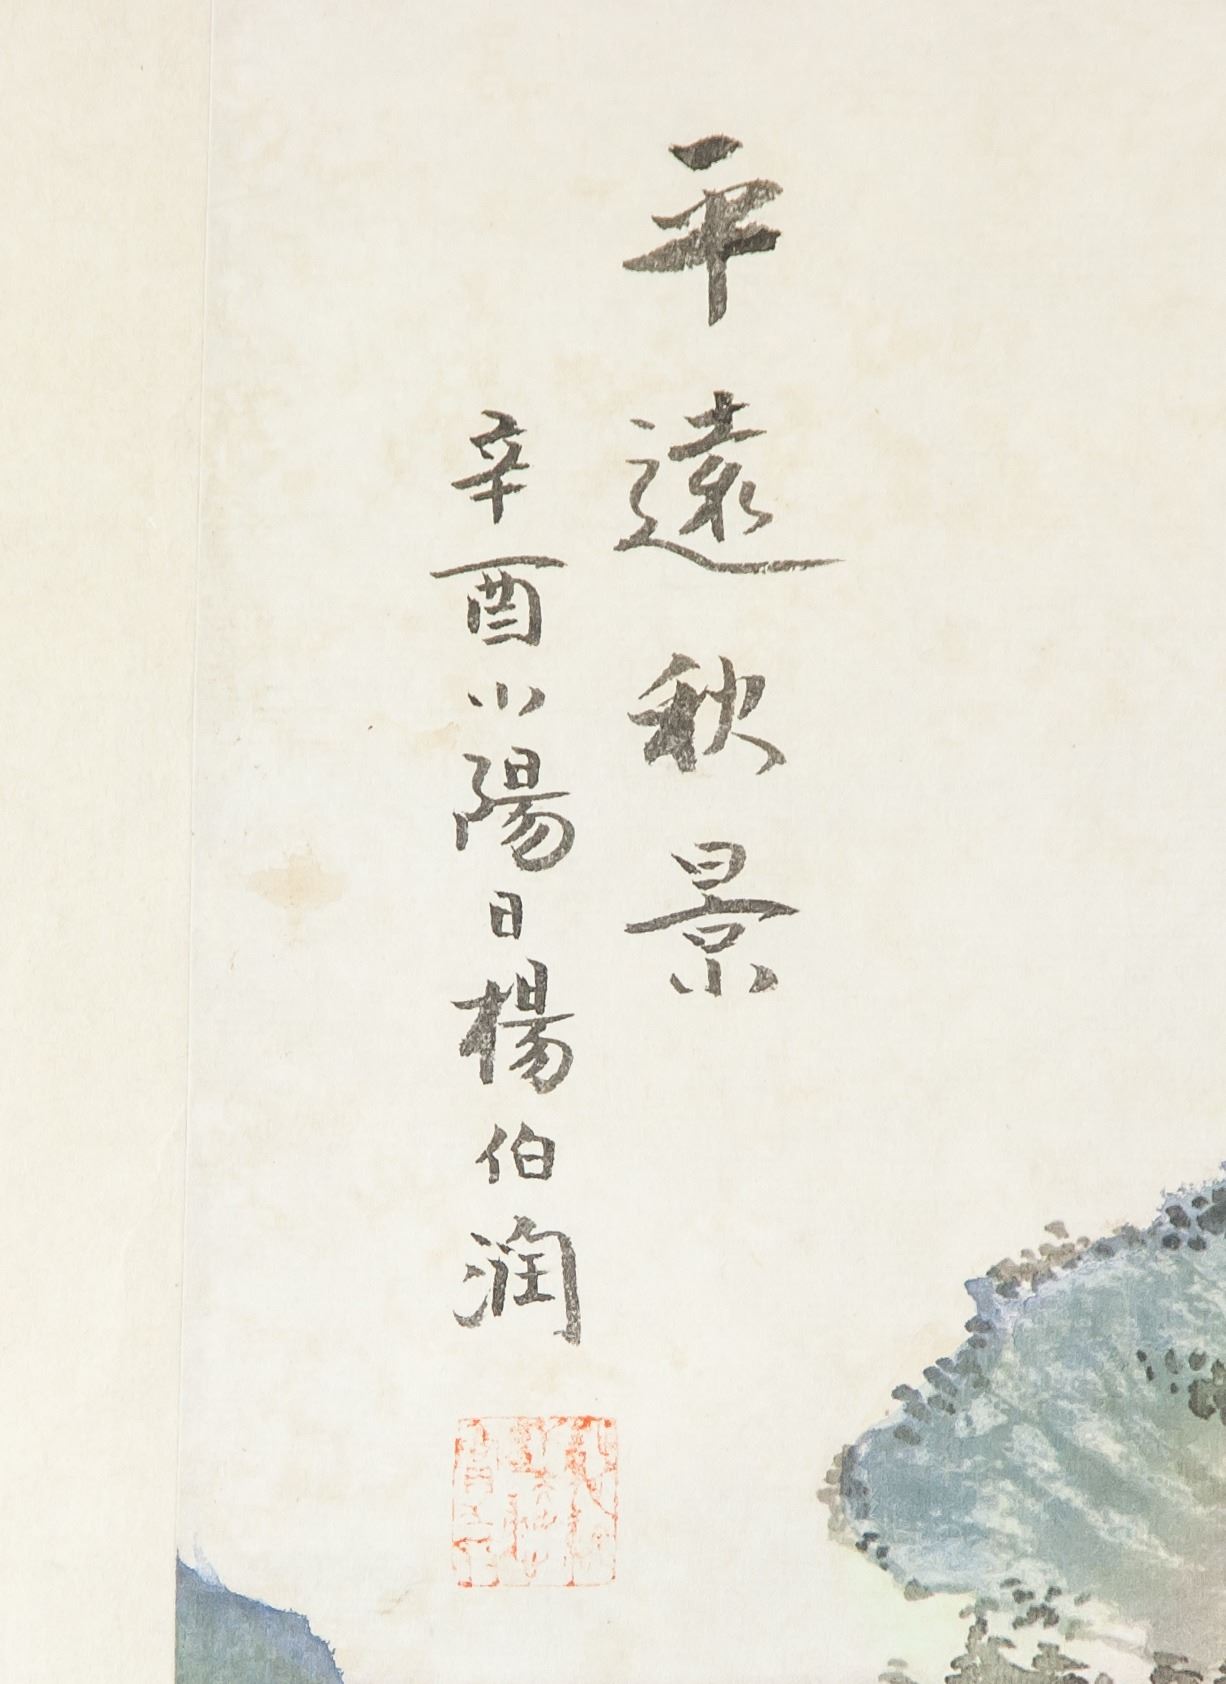 平遠秋景
辛酉小陽日楊伯潤